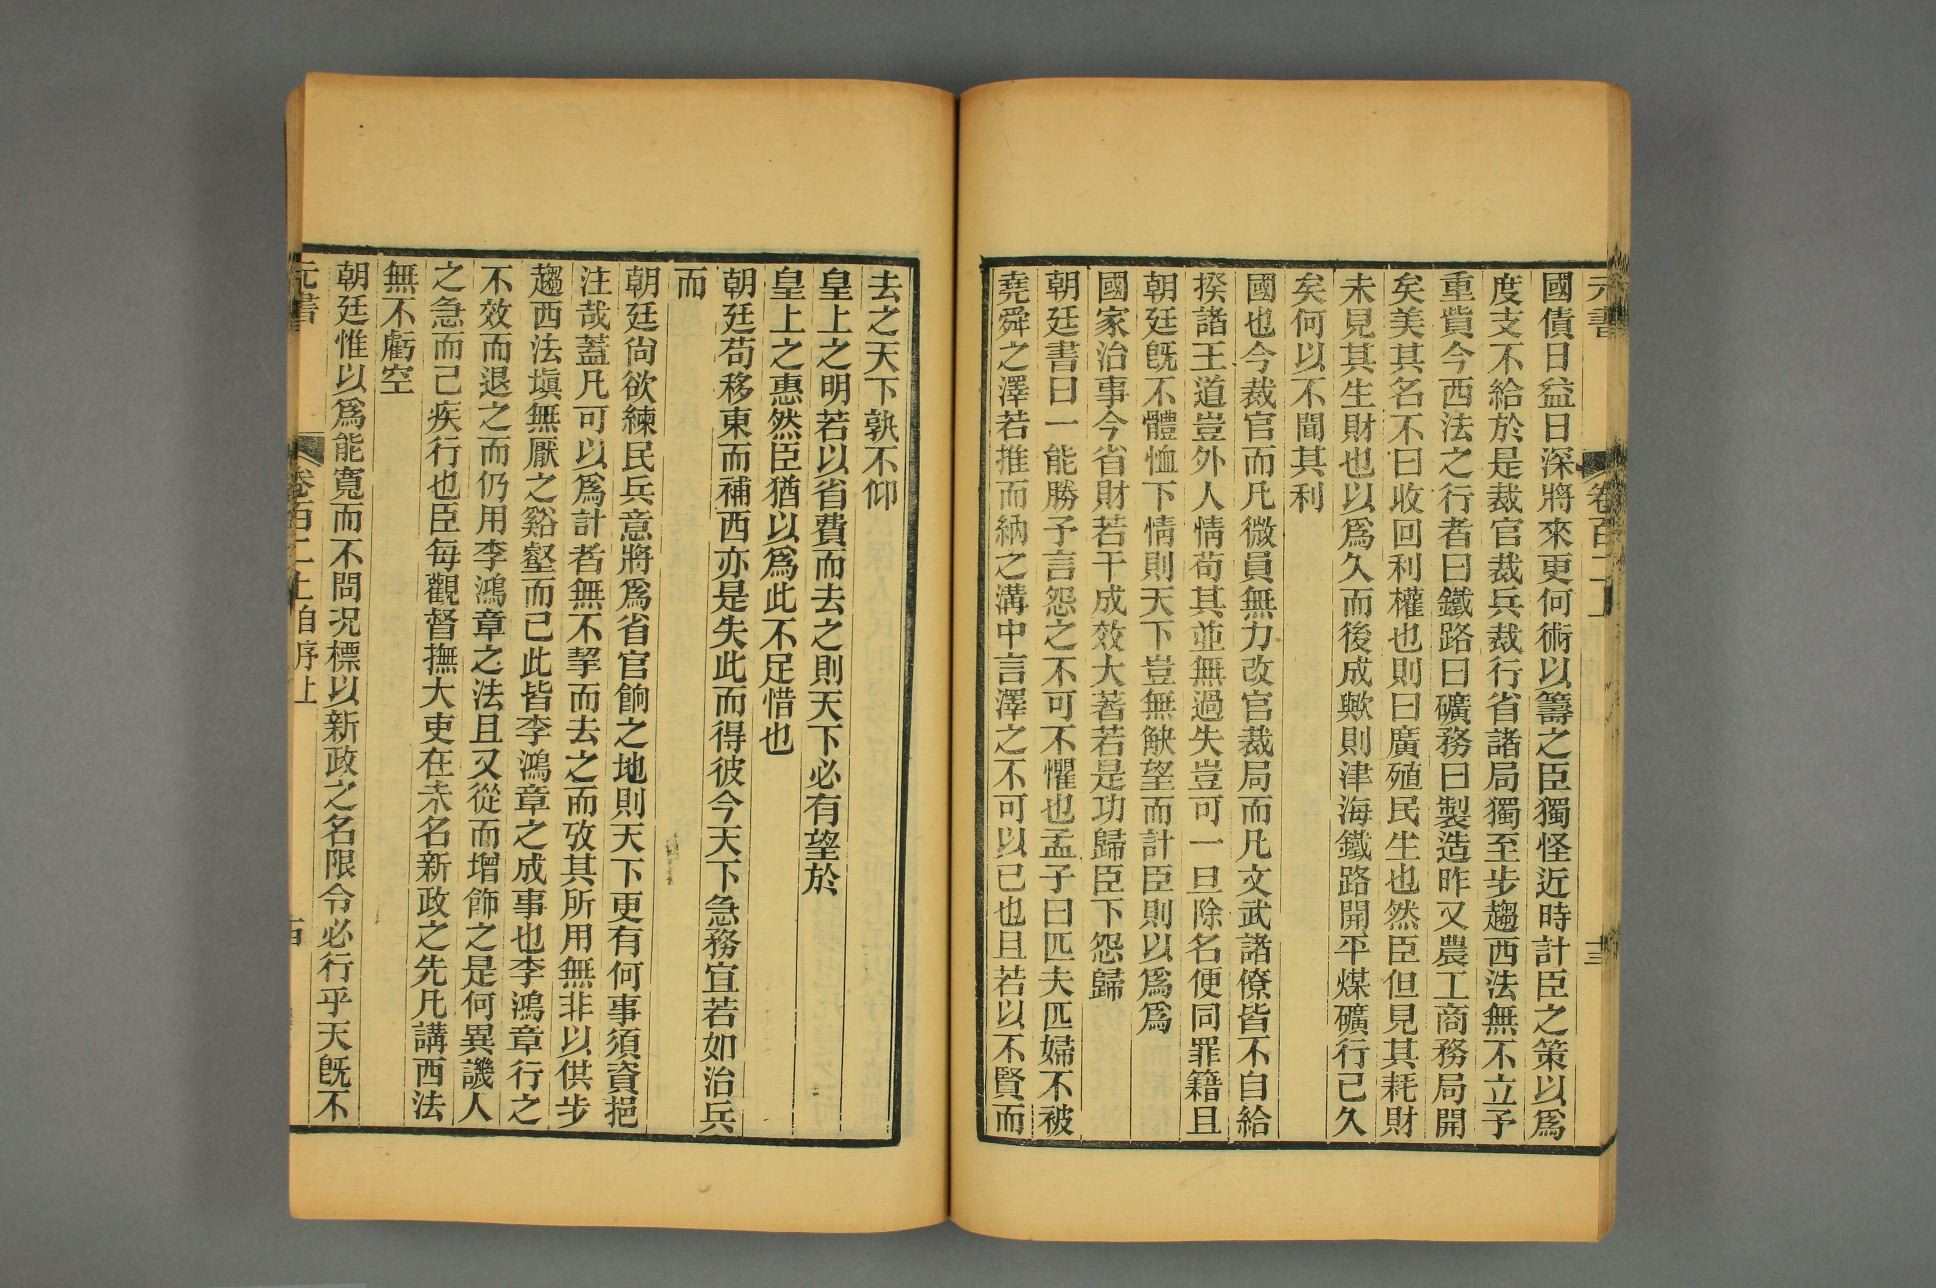 元書 卷百二上 十三
國債日益日深將來更何術以籌之臣獨怪近時計臣之策以爲
度支不給於是裁官裁兵裁行省諸局獨至步趨西法無不立予
重貲今西法之行者曰鐵路曰礦務曰製造昨又農工商務局開
矣美其名不曰收回利權也則曰廣殖民生也然臣但見其耗財
未見其生財也以爲久而後成歟則津海鐵路開平煤礦行已久
矣何以不聞其利
國也今裁官而凡微員無力改官裁局而凡文武諸僚皆不自給
揆諸王道豈外人情苟其並無過失豈可一旦除名便同罪籍且
朝廷旣不體恤下情則天下豈無觖望而計臣則以爲爲
國家治事今省財若干成效大著若是功歸臣下怨歸
朝廷書曰一能勝予言怨之不可不懼也孟子曰匹夫匹婦不被
堯舜之澤若推而納之溝中言澤之不可以已也且若以不賢而
去之天下孰不仰
皇上之明若以省費而去之則天下必有望於
皇上之惠然臣猶以爲此不足惜也
朝廷苟移東而補西亦是失此而得彼今天下急務宜若如治兵
而
朝廷尙欲練民兵意將爲省官餉之地則天下更有何事須資挹
注哉蓋凡可以爲計者無不挈而去之而攷其所用無非以供步
趨西法塡無厭之谿壑而已此皆李鴻章之成事也李鴻章行之
不效而退之而仍用李鴻章之法且又從而增飾之是何異譏人
之急而己疾行也臣每觀督撫大吏在未名新政之先凡講西法
無不虧空
朝廷惟以爲能寬而不問况標以新政之名限令必行乎天旣不
元書 卷百二上自序上 十四